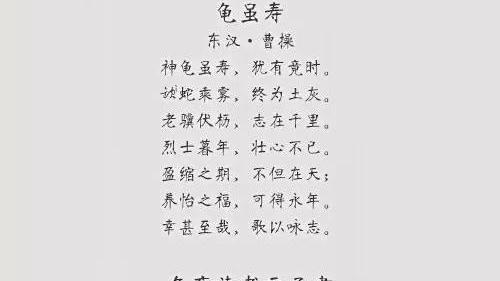 龟虽寿
东汉·曹操
神龟虽寿，犹有竟时。
蛇乘雾，终为土灰。
老骥伏枥，志在千里。
烈士暮年，壮心不已。
盈缩之期，不但在天；
养怡之福，可得永年。
幸甚至哉，歌以咏志。